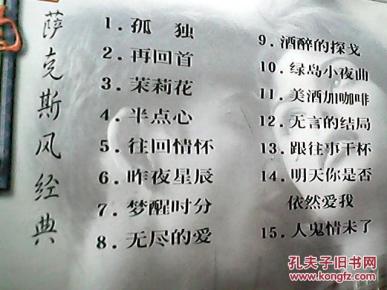 萨克斯风经典
1．孤独
2．再回首
3．茉莉花
4．半点心
5．往回情怀
6．昨夜星辰
7．梦醒时分
8．无尽的爱
9．酒醉的探戈
10．绿岛小夜曲
11．美酒加咖啡
12．无言的结局
13．跟往事干杯
14．明天你是否
依然爱我
15．人鬼情未了
孔夫子旧书网